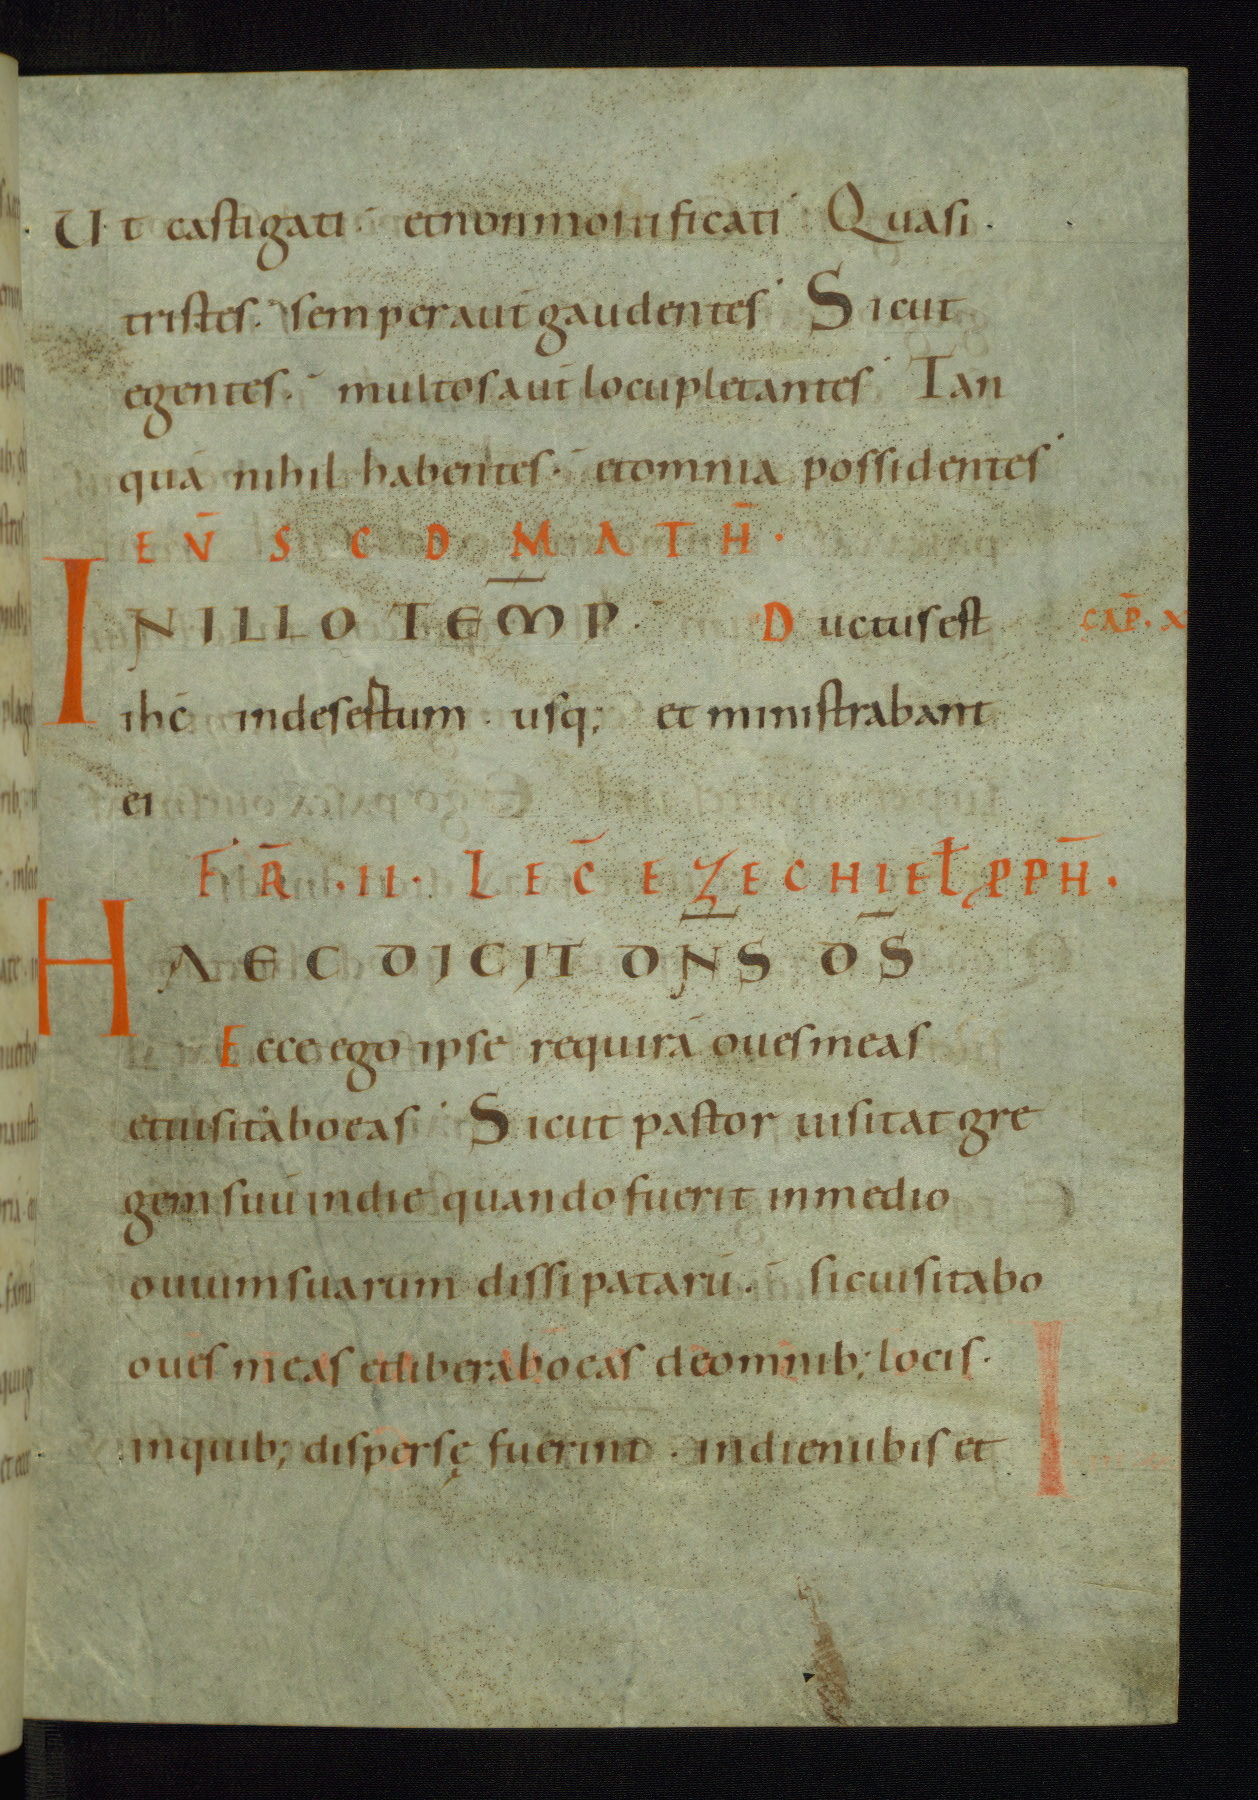 Ut castigati· et non mortificati Quasi·
tristes· semper aut̄ gaudentes Sicut
egentes· multos aut̄ locupletantes Tan
quā nihil habentes· et omnia possidentes
EV̄ SCD MATH̄·
IN ILLO TEM̄P· Ductus est CAP̄· X
ihc̄ in desertum· usq; et ministrabant
ei
FR̄·II· LEC̄ EZECHIEL PPH̄·
HAEC DICIT DN̄S DS̄
Ecce ego ipse requirā oues meas
et uisitabo eas Sicut pastor uisitat gre
gem suū in die quando fuerit in medio
ouium suarum dissipatarū· sic uisitabo
oues meas et liberabo eas de omnib; locis·
in quib; dispersę fuerint· in die nubis et